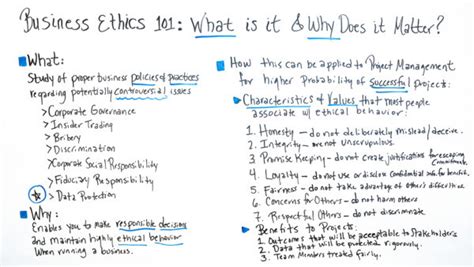 Business Ethics 101: What is it & Why Does it Matter?
What:
Study of proper business policies & practices
regarding potentially controversial issues
> Corporate Governance
> Insider Trading
> Bribery
> Discrimination
> Corporate Social Responsibility
> Fiduciary Responsibility
> Data Protection
Why:
Enables you to make responsible decisions
and maintain highly ethical behavior
when running a business.
How this can be applied to Project Management
for higher Probability of Successful projects:
Characteristics & Values that most people
associate w/ ethical behavior:
1. Honesty - do not deliberately mislead/deceive.
2. Integrity - are not unscrupulous.
3. Promise Keeping - do not create justifications for escaping
commitments.
4. Loyalty - do not use or disclose confidential info for benefits.
5. Fairness - do not take advantage of others difficulties
6. Concerns for Others - do not harm
7. Respectful Others - do not discriminate
Benefits to Projects:
1. Outcomes that will be acceptable to Stakeholders
2. Data that will be protected rigorously.
3. Team Members treated fairly.